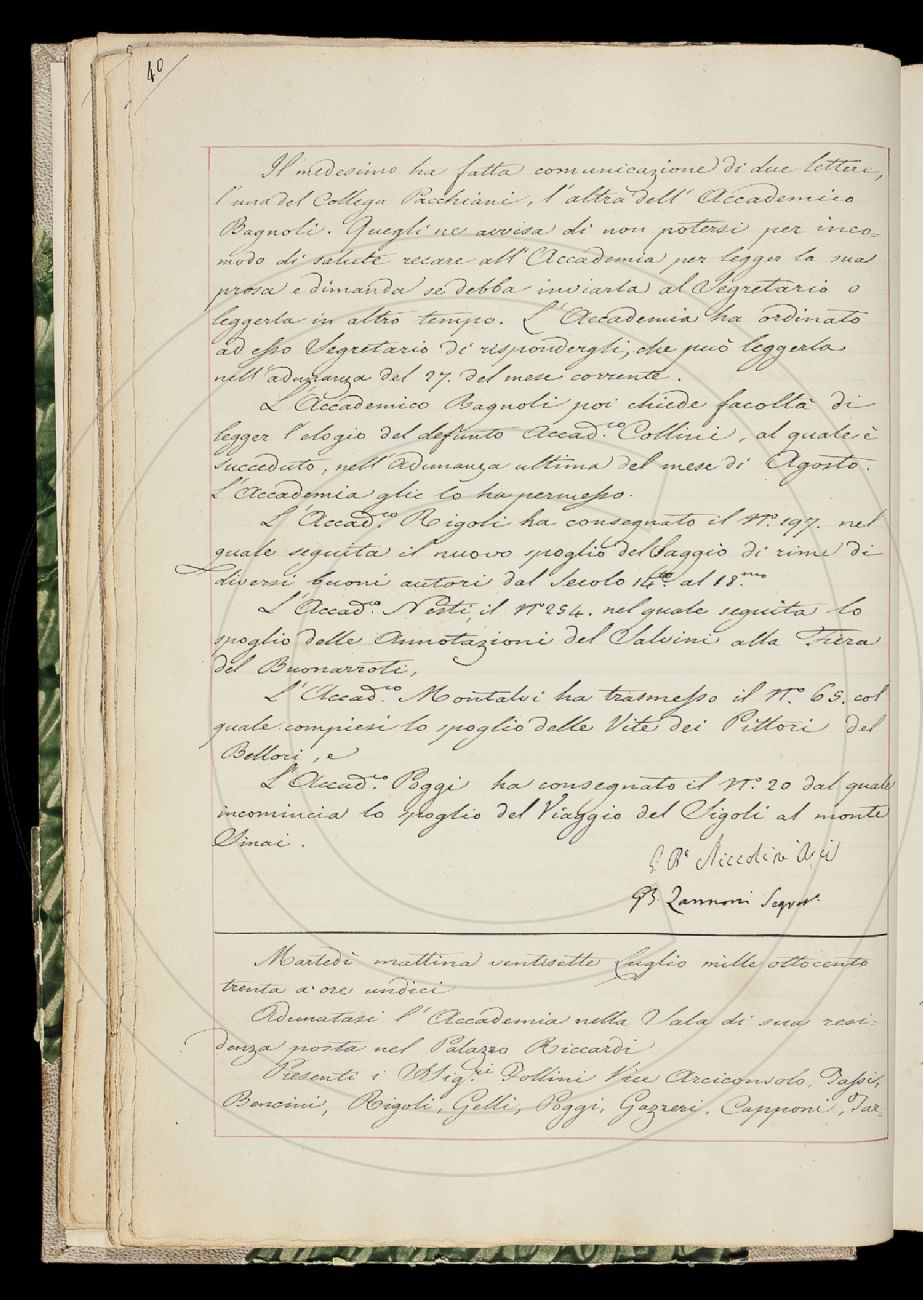 40
Il medesimo ha fatta comunicazione di due lettere,
l'una del Collega Pacchiani, l'altra dell'Accademico
Bagnoli. Quegli ne avvisa di non potersi per inco=
modo di salute recare all'Accademia per legger la sua
prosa e dimanda se debba inviarla al Segretario o
leggerla in altro tempo. L'Accademia ha ordinato
ad esso Segretario di rispondergli, che può leggerla
nell'adunanza del 27. del mese corrente.
L'Accademico Bagnoli poi chiede facoltà di
legger l'elogio del defunto Accad.co Collini, al quale è
succeduto, nell'Adunanza ultima del mese di Agosto.
L'Accademia glie lo ha permesso.
L'Accad.co Rigoli ha consegnato il N.o 197. nel
quale seguita il nuovo spoglio del Saggio di rime di
diversi buoni autori dal Secolo 14.to al 18.mo
L'Accad.co Nesti, il N.o 254. nel quale seguita lo
spoglio delle Annotazioni del Salvini alla Fiera
del Buonarroti,
L'Accad.co Montalvi ha trasmesso il N.o 65. col
quale compiesi lo spoglio delle Vite dei Pittori del
Bellori, e
L'Accad.co Poggi ha consegnato il N.o 20 dal quale
incomincia lo spoglio del Viaggio del Sigoli al monte
Sinai.
G. B.a Niccolini
GB. Zannoni Segret.o
Martedì mattina ventisette Luglio mille ottocento
trenta a ore undici
Adunatasi l'Accademia nella Sala di sua resi=
denza posta nel Palazzo Riccardi
Presenti i SSig.ri Follini Vice Arciconsolo, Tassi,
Bencini, Rigoli, Gelli, Poggi, Gazzeri, Capponi, Tar=